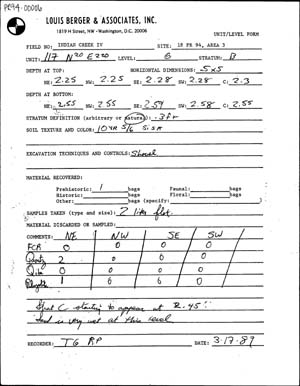 PR94-00006
LOUIS BERGER & ASSOCIATES, INC.
1819 H Street, NW - Washington, D.C. 20006
UNIT/LEVEL FORM
FIELD NO: INDIAN CREEK IV SITE: 18 PR 94, AREA 3
UNIT: 117 N20 E220 LEVEL: 6 STRATUM: B
DEPTH AT TOP: HORIZONTAL DIMENSIONS: 5x5
NE: 2.25 NW: 2.25 SE: 2.28 SW: 2.28 C: 2.3
DEPTH AT BOTTOM:
NE: 2.55 NW: 2.55 SE: 2.59 SW: 2.58 C: 2.55
STRATUM DEFINITION (arbitrary or natural): .3ft
SOIL TEXTURE AND COLOR: 10YR 5/6
EXCAVATION TECHNIQUES AND CONTROLS: Shovel
MATERIAL RECOVERED:
Prehistoric: 1 bags Faunal: bags
Historic: bags Floral: bags
Other: bags (specify: )
SAMPLES TAKEN (type and size): 2 liter flot.
MATERIAL DISCARDED OR SAMPLED:
COMMENTS: NE NW SE SW
FCR 0 0 0 0
2 0 0 0
0 0 0 0
1 6 6 0
Strat C starting to appear at 2.45'.
is very wet at this level
RECORDER: TG RP DATE: 3-17-89